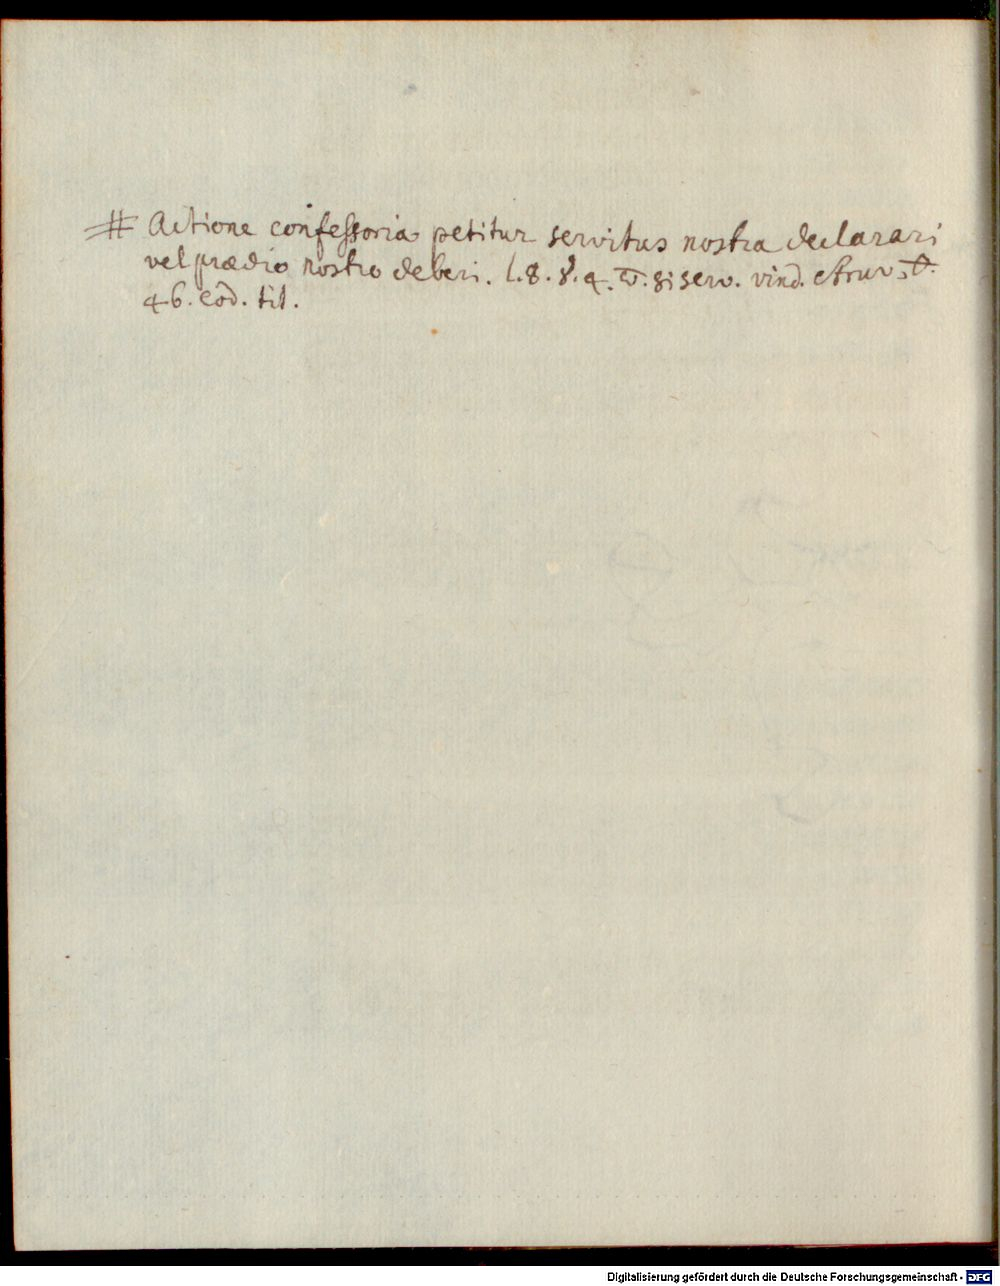 # Actione confessoria petitur servitus nostra declarari
vel prædio nostro deberi. l. 8. §. 4. π. si serv. vind. Struv.
46. eod. tit.
Digitalisierung gefördert durch die Deutsche Forschungsgemeinschaft - DFG